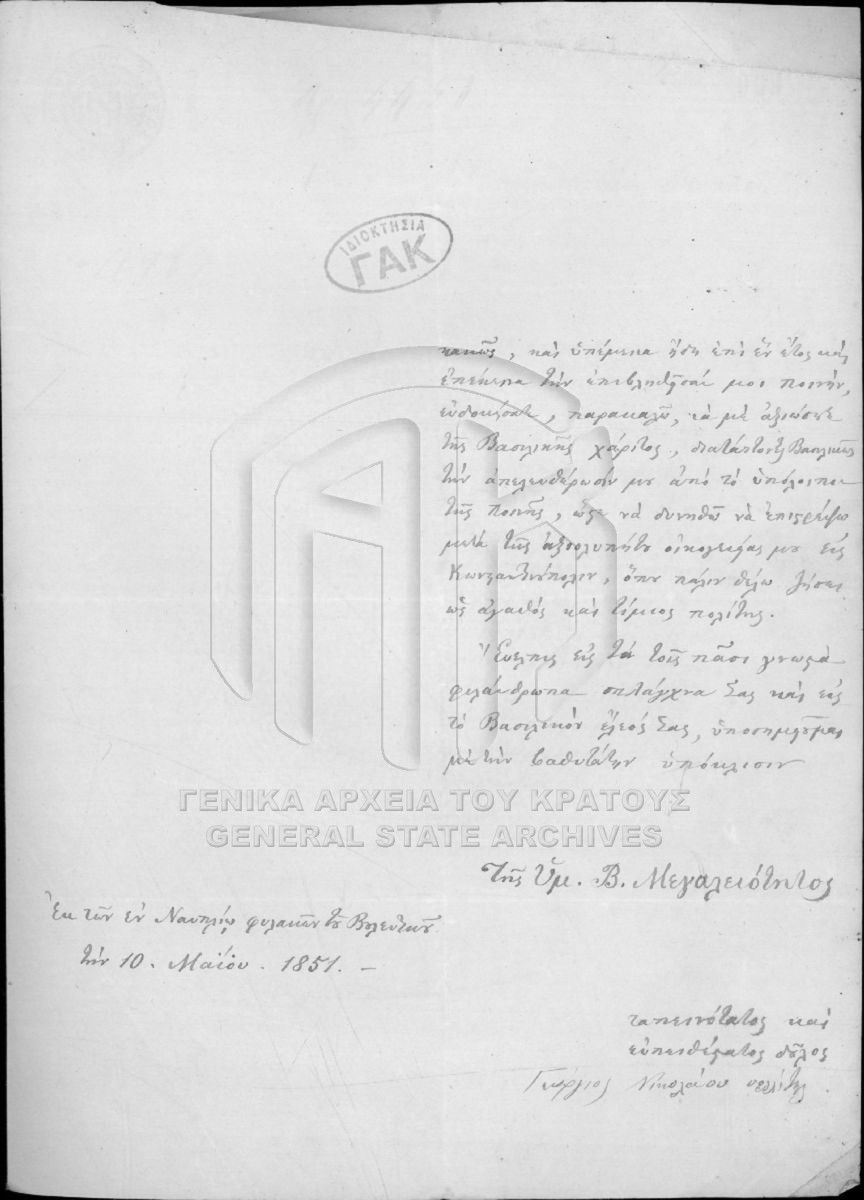 ΙΔΙΟΚΤΗΣΙΑ
ΓΑΚ
κακῶς, καὶ ὑπέμεινα ἤδη ἐπὶ ἓν ἔτος καὶ
ἐπέκεινα τὴν ἐπιβληθεῖσάν μοι ποινήν,
εὐδοκήσατε, παρακαλῶ, νὰ μὲ ἀξιώσετε
τῆς Βασιλικῆς χάριτος, διατάττοντες Βασιλικῶς
τὴν ἀπελευθέρωσίν μου ἀπὸ τὸ ὑπόλοιπον
τῆς ποινῆς, ὥστε νὰ δυνηθῶ νὰ ἐπιστρέψω
μετὰ τῆς ἀξιολυπήτου οἰκογενείας μου εἰς
Κωνσταντινούπολιν, ὅπου πάλιν θέλω ζήσει
ὡς ἀγαθὸς καὶ τίμιος πολίτης.
Εὔελπις εἰς τὰ τοῖς πᾶσι γνωστὰ
φιλάνθρωπα σπλάγχνα Σας καὶ εἰς
τὸ Βασιλικὸν ἔλεός Σας, ὑποσημειοῦμαι
μὲ τὴν βαθυτάτην ὑπόκλισιν
ΓΕΝΙΚΑ ΑΡΧΕΙΑ ΤΟΥ ΚΡΑΤΟΥΣ
GENERAL STATE ARCHIVES
Τῆς Ὑμ. Β. Μεγαλειότητος
Ἐκ τῶν ἐν Ναυπλίῳ φυλακῶν τοῦ Βουλευτικοῦ
τὴν 10. Μαΐου. 1851. –
ταπεινότατος καὶ
εὐπειθέστατος δοῦλος
Γεώργιος Νικολάου